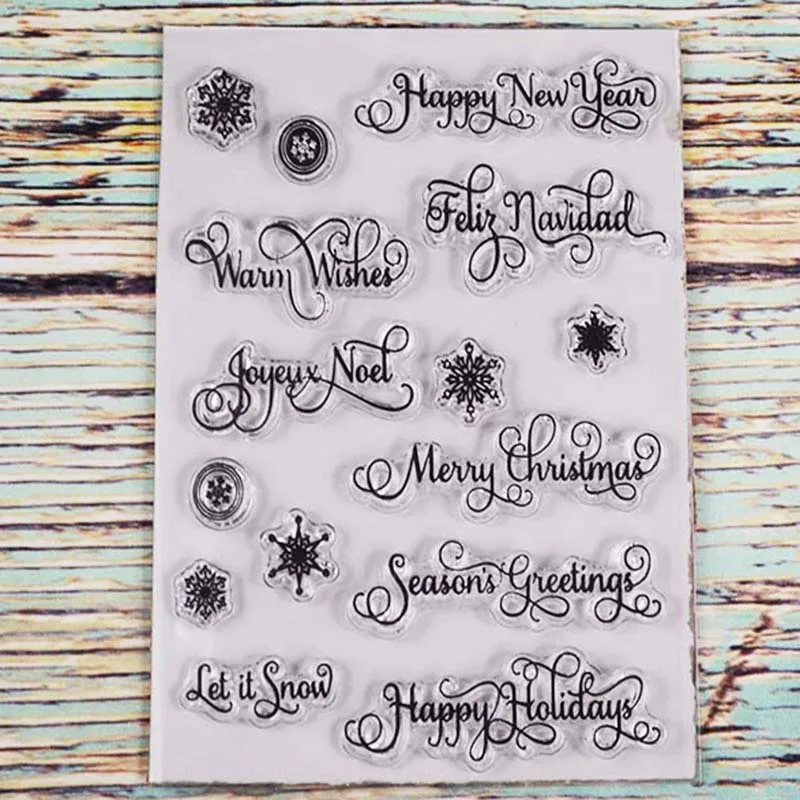 Happy New Year
Feliz Navidad
Warm Wishes
Joyeux Noel
Merry Christmas
Season's Greetings
Let it Snow
Happy Holidays